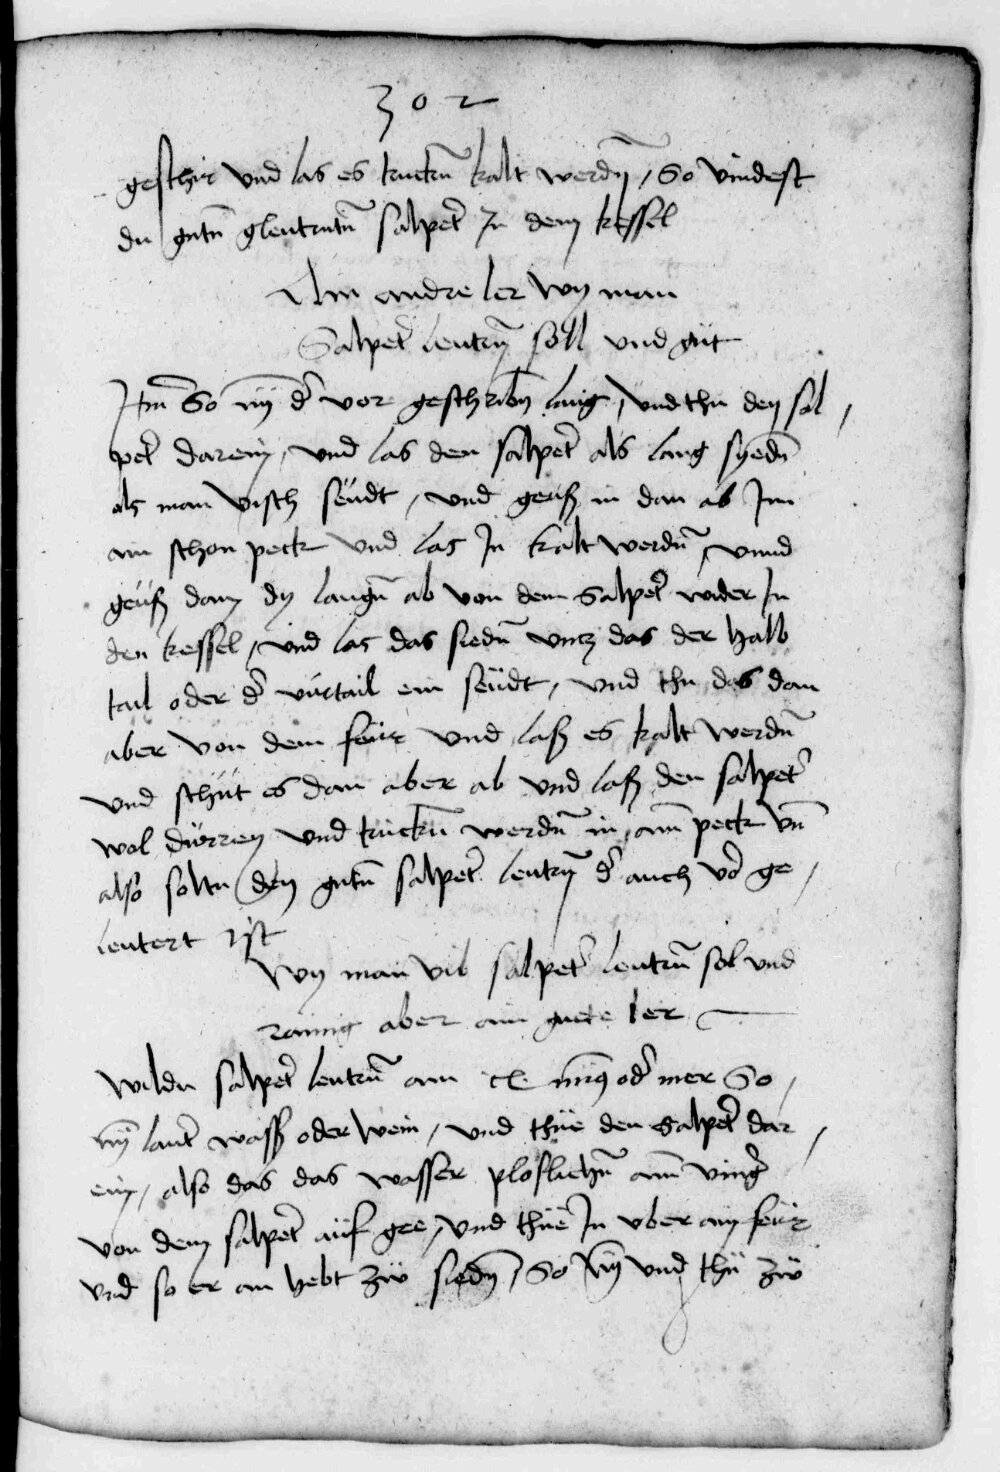 302
geschir vnd las es trucken kalt werden / So vindest
du guten gleutruten salpeter In dem kessel
Ain andre ler wy man
Salpeter leutren soll vnd gut
Item So nym der vor geschriben laug / vnd thu den sal /
peter darein / vnd las den salpeter als lang syeden
als man visch seudt / vnd geuß in dan ab Inn
ain schon peck vnd las In kalt werden / vnnd
geuß dann dy laugen ab von dem Salpeter wider In
den kessel / vnd las das sieden vntz das der halb
tail oder der viertail ein seudt / vnd thu das dan
aber von dem feur vnd laß es kalt werden
vnd schut es dan aber ab vnd laß den salpeter
wol dürren vnd trucken werden in aim peck vnd
also soltu den guten salpeter leutren der auch vor ge /
leutert ist
Wy man vil salpeter leutren sol vnd
rainig aber ain guete ler
Wildu salpeter leutren ain oder mer So /
nym lauter wasser oder wein / vnd thue den salpeter dar /
ein / also das das wasser plosliche aim vinger
von dem salpeter auf gee / vnd thue In vber ain feur
vnd so er an hebt zw sieden / So nym vnd thu zw